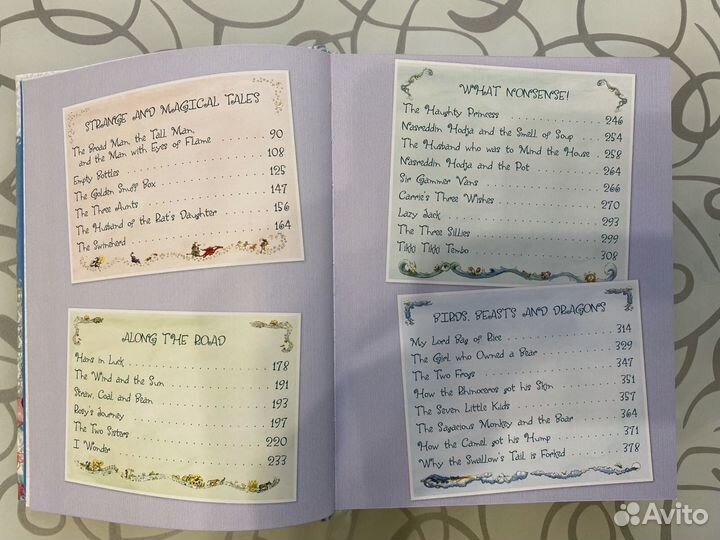 STRANGE AND MAGICAL TALES
The Broad Man, the Tall Man,
and the Man with Eyes of Flame . . . . . . 90
Empty Bottles . . . . . . 108
The Golden Snuff Box . . . . . . 125
The Three Aunts . . . . . . 147
The Husband of the Rat's Daughter . . . . . . 156
The Swineherd . . . . . . 164
ALONG THE ROAD
Hans in Luck . . . . . . 178
The Wind and the Sun . . . . . . 191
Straw, Coal and Bean . . . . . . 193
Rosy's Journey . . . . . . 197
The Two Sisters . . . . . . 220
I Wonder . . . . . . 233
WHAT NONSENSE!
The Haughty Princess . . . . . . 246
Nasreddin Hodja and the Smell of Soup . . . . . . 254
The Husband who was to Mind the House . . . . . . 258
Nasreddin Hodja and the Pot . . . . . . 264
Sir Gammer Vans . . . . . . 266
Carrie's Three Wishes . . . . . . 270
Lazy Jack . . . . . . 293
The Three Sillies . . . . . . 299
Tikki Tikki Tembo . . . . . . 308
BIRDS, BEASTS AND DRAGONS
My Lord Bag of Rice . . . . . . 314
The Girl who Owned a Bear . . . . . . 329
The Two Frogs . . . . . . 347
How the Rhinoceros got his Skin . . . . . . 351
The Seven Little Kids . . . . . . 357
The Sagacious Monkey and the Boar . . . . . . 364
How the Camel got his Hump . . . . . . 371
Why the Swallow's Tail is Forked . . . . . . 378
Avito